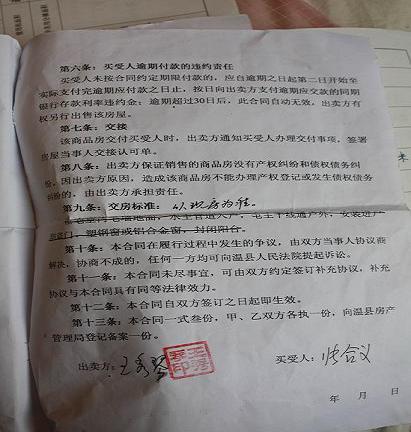 第六条：买受人逾期付款的违约责任
买受人未按合同约定期限付款的，应自逾期之日起第二日开始至
实际支付完逾期应付款之日止，按日向出卖方支付逾期应交款的同期
银行存款利率违约金；逾期超过30日后，此合同自动无效，出卖方有
权另行出售该房屋。
第七条：交接
该商品房交付买受人时，出卖方通知买受人办理交付事项，签署
房屋当事人交接认可单。
第八条：出卖方保证销售的商品房没有产权纠纷和债权债务纠
纷，因出卖方原因，造成该商品房不能办理产权登记或发生债权债务
纠纷的，由出卖方承担责任。
第九条：交房标准：以现房为准。
毛室内毛墙地面，水主管道入户，电主干线通户外，安装进户
门，塑钢窗或铝合金窗，封闭阳台。
第十条：本合同在履行过程中发生的争议，由双方当事人协议商
解决，协商不成的，任何一方均可向温县人民法院提起诉讼。
第十一条：本合同未尽事宜，可由双方约定签订补充协议，补充
协议与本合同具有同等法律效力。
第十二条：本合同自双方签订之日起即生效。
第十三条：本合同一式叁份，甲、乙双方各执一份，向温县房产
管理局登记备案一份。
出卖方：王 买受人：张合义
年 月 日